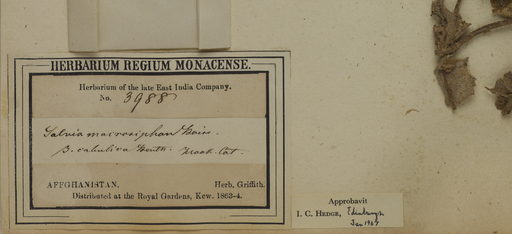 HERBARIUM REGIUM MONACENSE.
Herbarium of the late East India Company.
No. 3988
Salvia macrosiphon Boiss.
β. cabulica Benth.
AFFGHANISTAN. Herb. Griffith.
Distributed at the Royal Gardens, Kew. 1863-4.
Approbavit
I. C. HEDGE, Edinburgh
Jan 1967